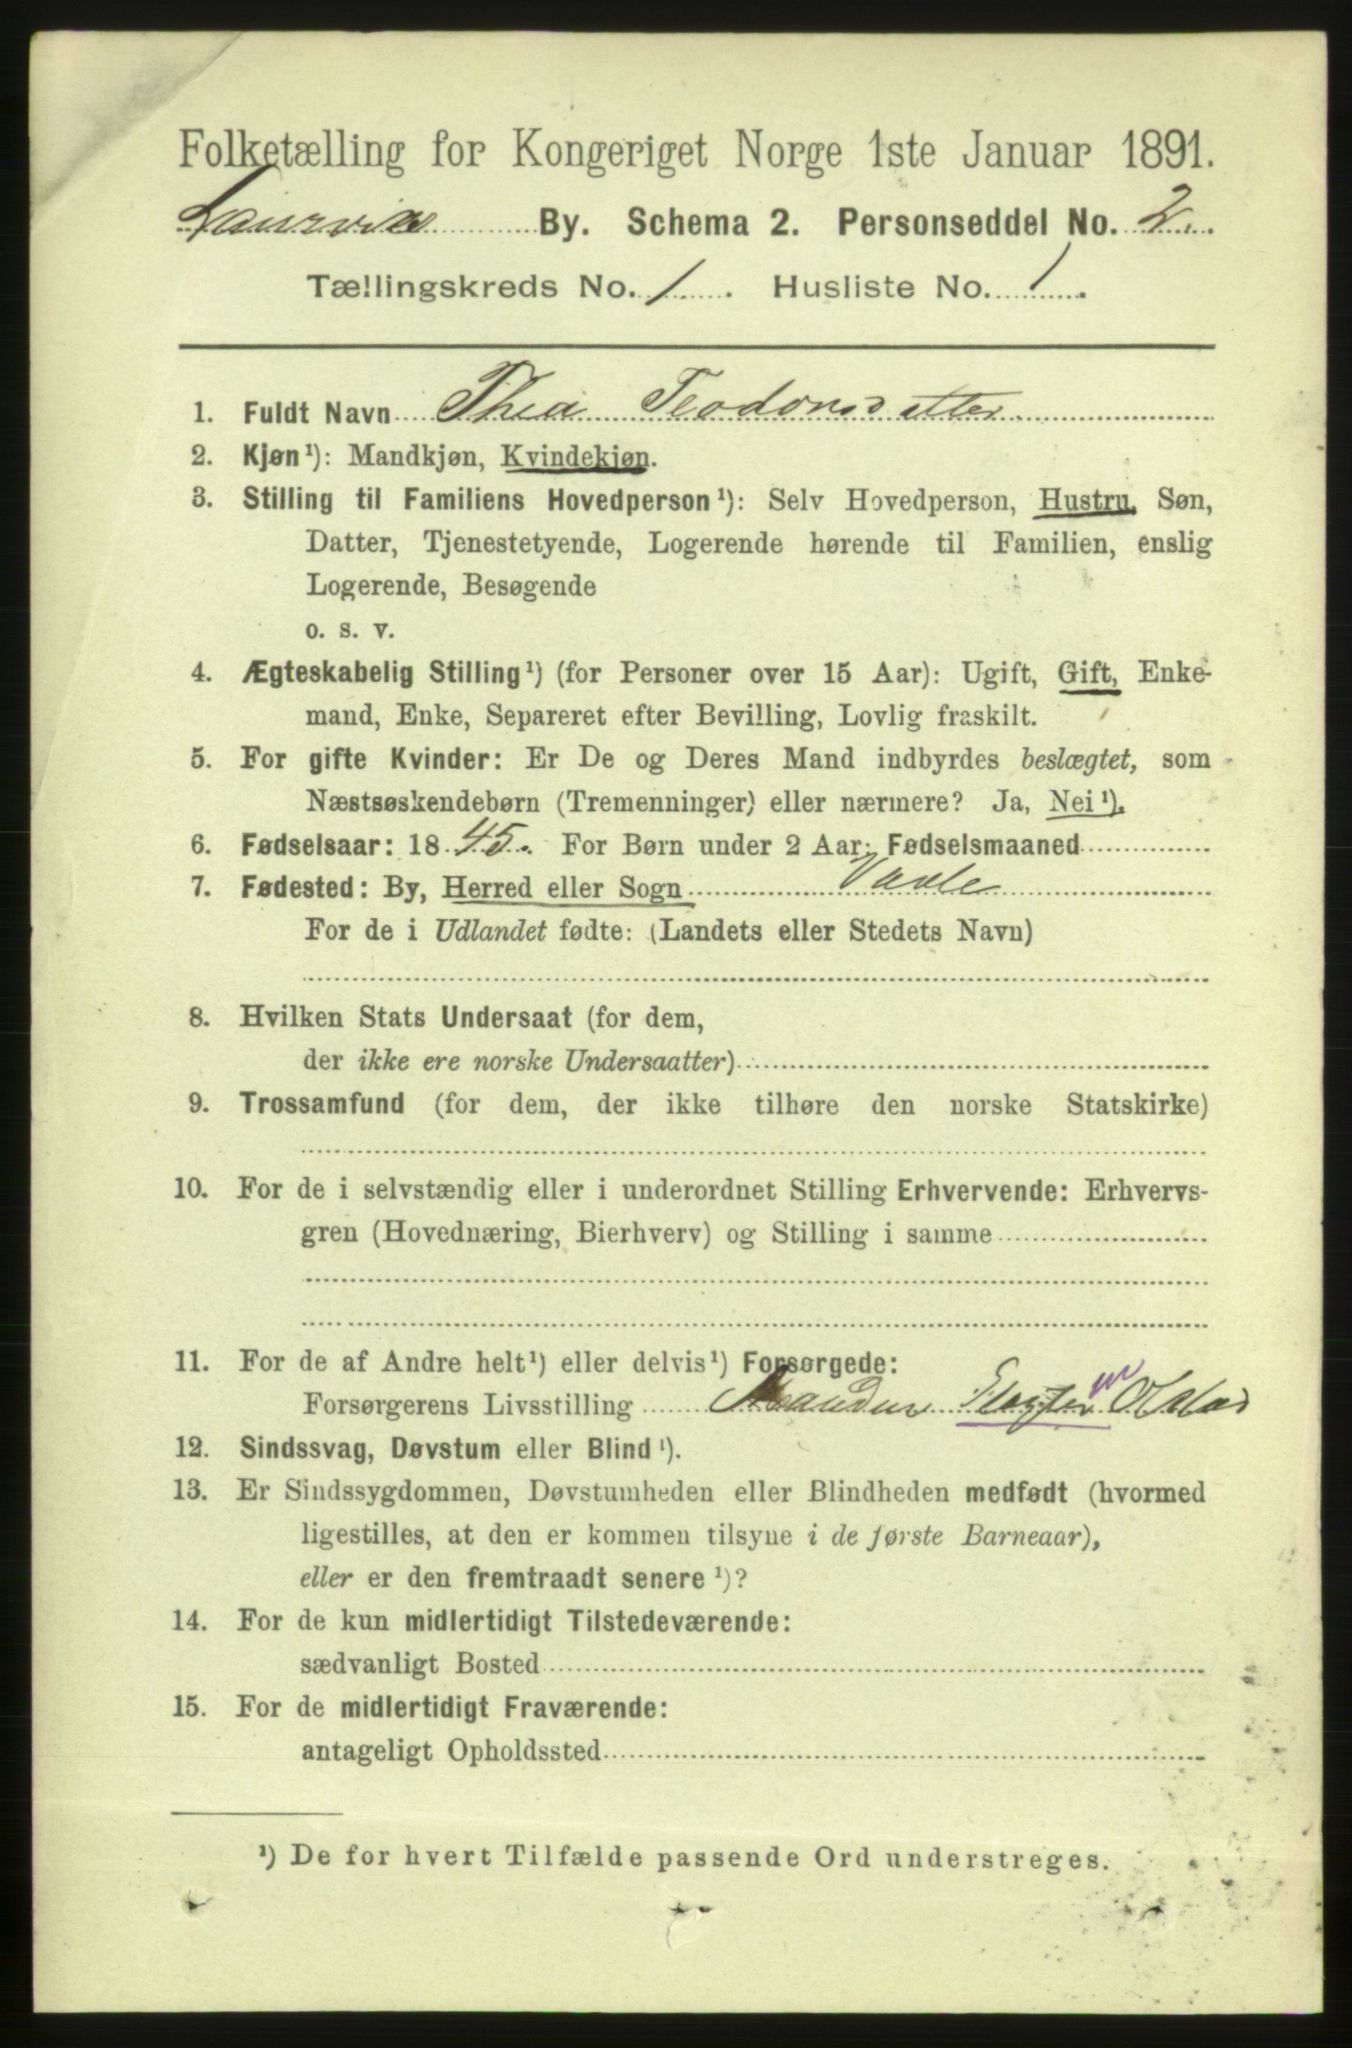 Folketælling for Kongeriget Norge 1ste Januar 1891.
Laurvik By. Schema 2. Personseddel No. 2
Tællingskreds No. 1. Husliste No. 1
1. Fuldt Navn Thea Teodorsdatter
2. Kjøn¹): Mandkjøn, Kvindekjøn.
3. Stilling til Familiens Hovedperson¹): Selv Hovedperson, Hustru, Søn,
Datter, Tjenestetyende, Logerende hørende til Familien, enslig
Logerende, Besøgende
o. s. v.
4. Ægteskabelig Stilling¹) (for Personer over 15 Aar): Ugift, Gift, Enke-
mand, Enke, Separeret efter Bevilling, Lovlig fraskilt.
5. For gifte Kvinder: Er De og Deres Mand indbyrdes beslægtet, som
Næstsøskendebørn (Tremenninger) eller nærmere? Ja, Nei¹).
6. Fødselsaar: 1845. For Børn under 2 Aar: Fødselsmaaned
7. Fødested: By, Herred eller Sogn Vaale
For de i Udlandet fødte: (Landets eller Stedets Navn)
8. Hvilken Stats Undersaat (for dem,
der ikke ere norske Undersaatter)
9. Trossamfund (for dem, der ikke tilhøre den norske Statskirke)
10. For de i selvstændig eller i underordnet Stilling Erhvervende: Erhvervs-
gren (Hovednæring, Bierhverv) og Stilling i samme
11. For de af Andre helt¹) eller delvis¹) Forsørgede:
Forsørgerens Livsstilling Manden Slagter m
12. Sindssvag, Døvstum eller Blind¹).
13. Er Sindssygdommen, Døvstumheden eller Blindheden medfødt (hvormed
ligestilles, at den er kommen tilsyne i de første Barneaar),
eller er den fremtraadt senere¹)?
14. For de kun midlertidigt Tilstedeværende:
sædvanligt Bosted
15. For de midlertidigt Fraværende:
antageligt Opholdssted
¹) De for hvert Tilfælde passende Ord understreges.